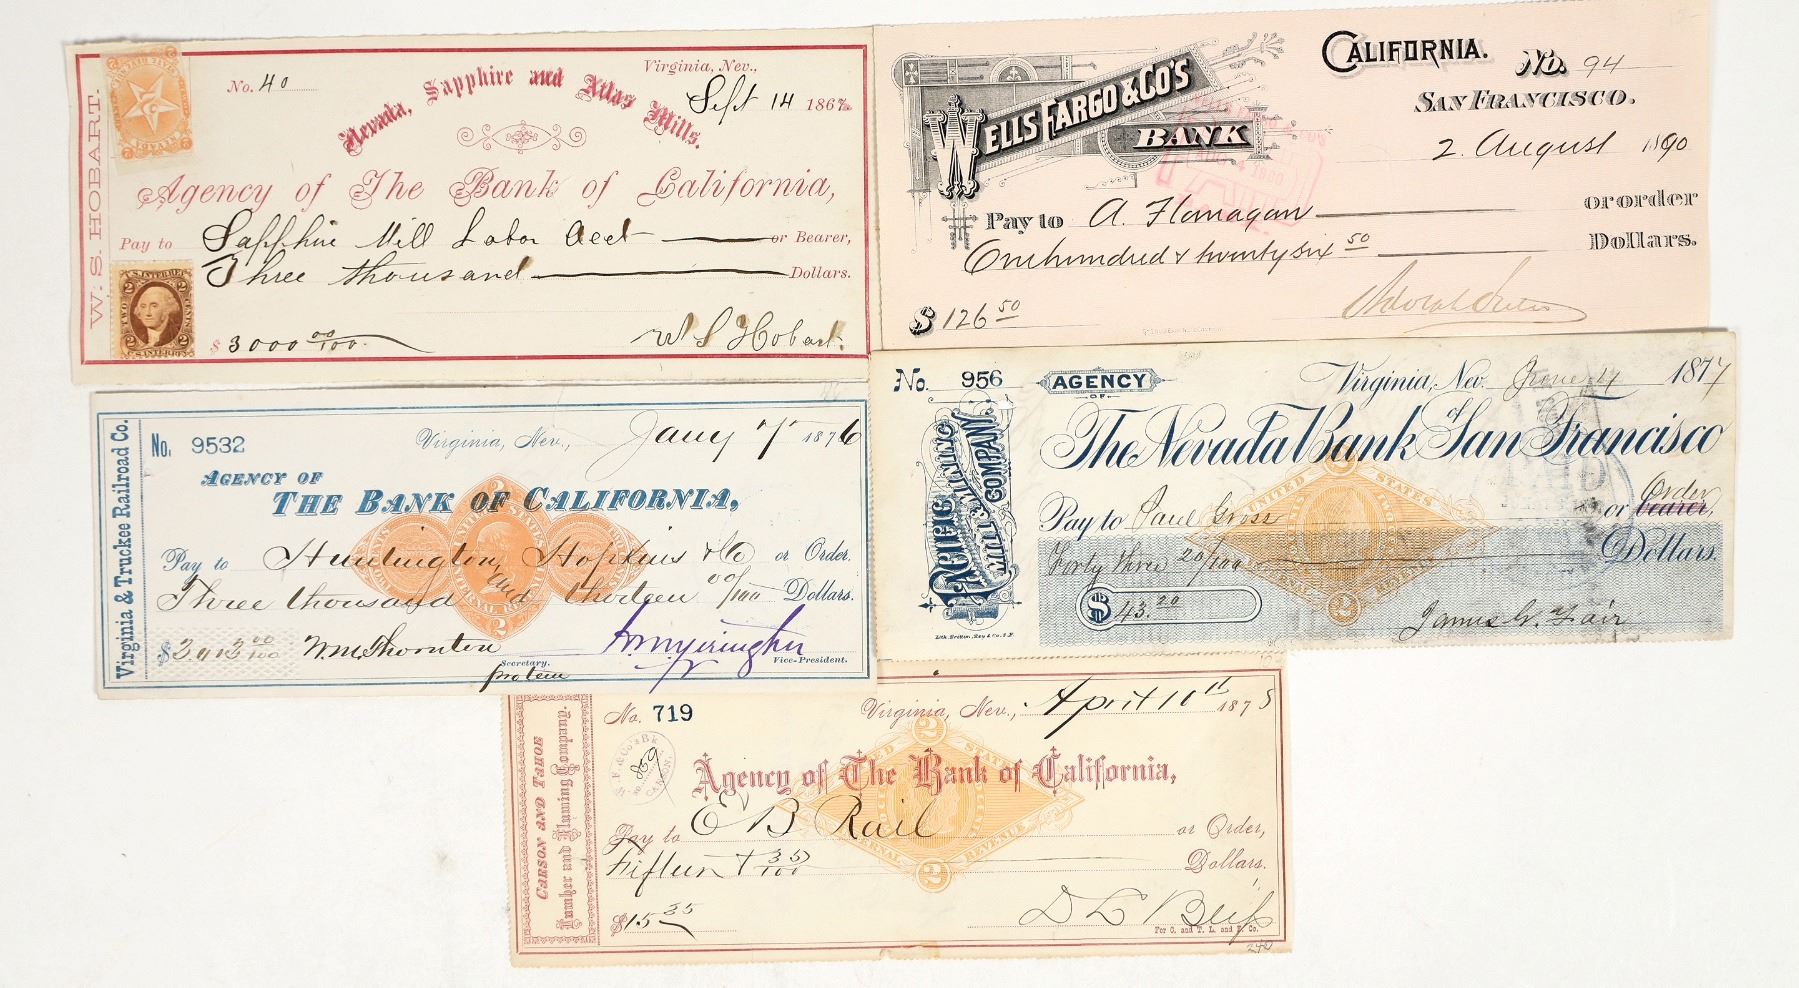 W. S. HOBART.
No. 40
Virginia, Nev.,
Sept 14 1867
Nevada, Sapphire and Atlas Mills.
Agency of The Bank of California,
Pay to Sapphire Mill Labor Acct or Bearer,
Three thousand Dollars.
$ 3000 00/100
W S Hobart.
NEVADA
2
U.S. INTER. REV.
2 2
TWO CENTS
U.S. INTER. REV.
WELLS FARGO & CO'S
BANK
CALIFORNIA.
No. 94
SAN FRANCISCO.
2 August 1890
Pay to A. Flanagan or order
One hundred & twenty six 50 Dollars.
$ 126 50
Virginia & Truckee Railroad Co.
No. 9532
Virginia, Nev., Jany 7 1876
AGENCY OF
THE BANK OF CALIFORNIA,
Pay to Huntington Hopkins & Co or Order.
Three thousand and thirteen 00/100 Dollars.
$3,013 00/100
Secretary.
pro tem
Vice-President.
No. 956
AGENCY
OF
Virginia, Nev. June 1877
The Nevada Bank of San Francisco
PACIFIC MILL & MINING COMPANY
Pay to Paul Gross or bearer,
Order
Forty three 20/100 Dollars.
$ 43.20
James G. Fair
UNITED STATES
INTERNAL REVENUE
PAID
Lith. Britton, Rey & Co. S.F.
CARSON AND TAHOE
Lumber and Fluming Company.
No. 719
Virginia, Nev., April 11 1878
W. F. & Co's Bk
No. 859
CARSON
Agency of The Bank of California,
Pay to E B Rail or Order,
Fifteen + 35/100 Dollars.
$15 35
D L Bliss
For C. and T. L. and F. Co.
240